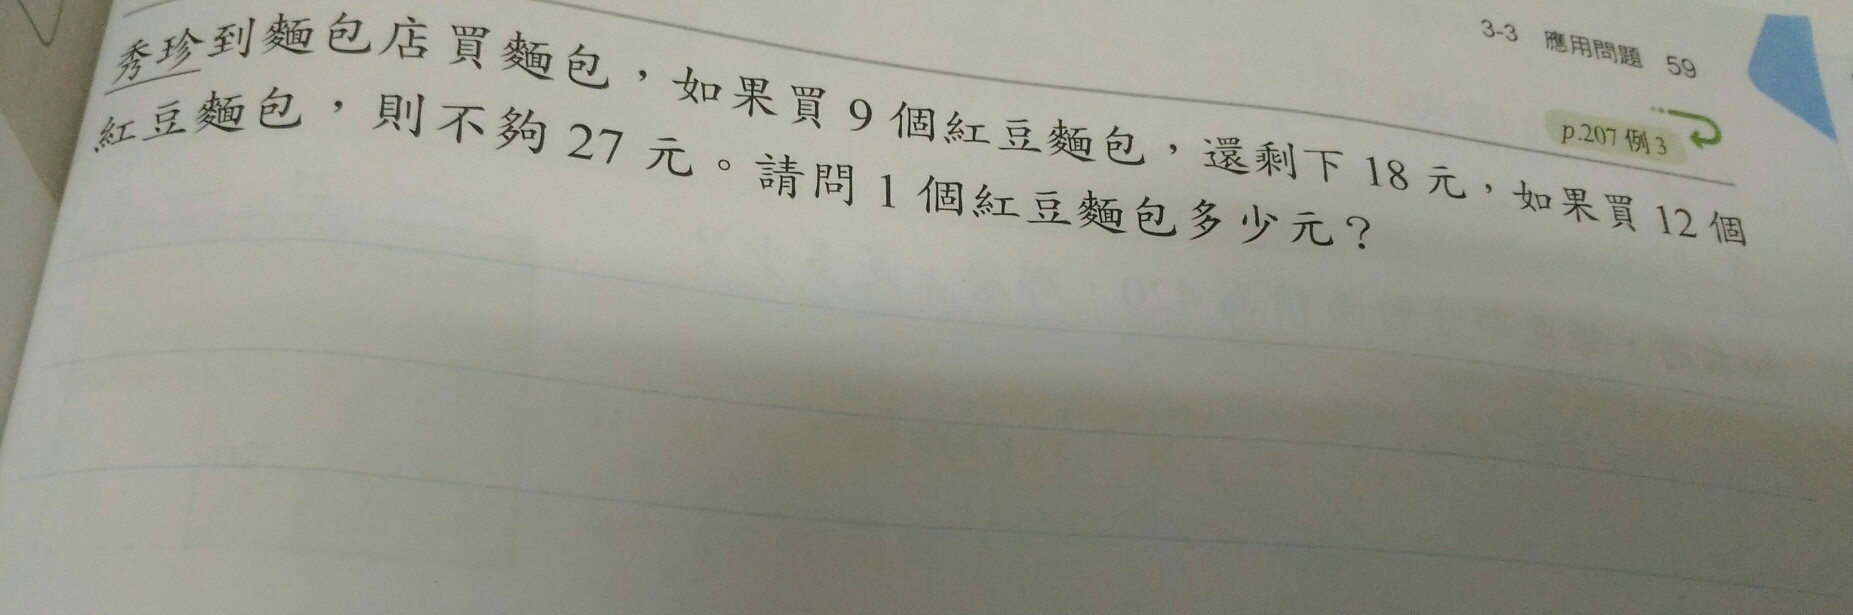 3-3 應用問題 59
p.207 例 3
秀珍到麵包店買麵包，如果買 9 個紅豆麵包，還剩下 18 元，如果買 12 個
紅豆麵包，則不夠 27 元。請問 1 個紅豆麵包多少元？